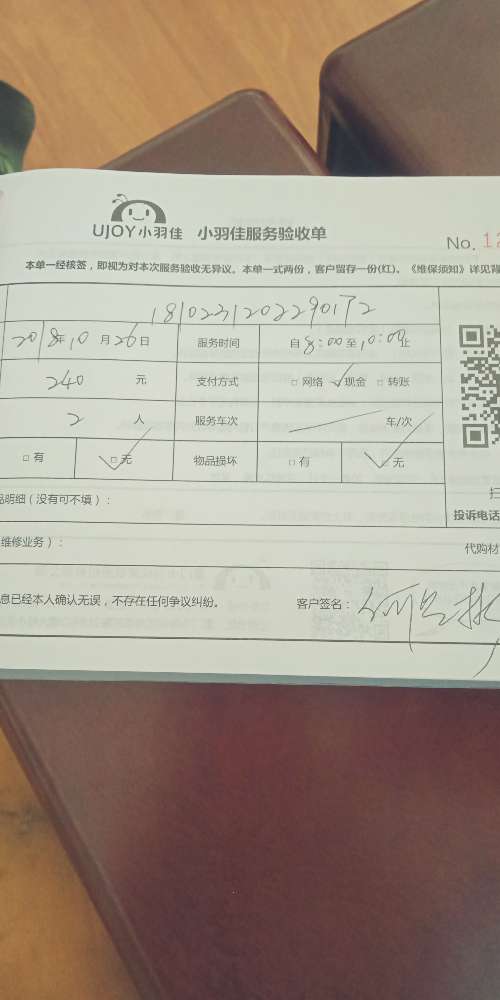 UJOY小羽佳 小羽佳服务验收单
No. 12
本单一经核签，即视为对本次服务验收无异议。本单一式两份，客户留存一份(红)。《维保须知》详见背
2018年10月26日 服务时间 自8:00至10:00止
240元 支付方式 □网络 ✓现金 □转账
2人 服务车次 车/次
□有 □无 物品损坏 □有 □无
品明细（没有可不填）：
投诉电话
维修业务）：
代购材
息已经本人确认无误，不存在任何争议纠纷。 客户签名：